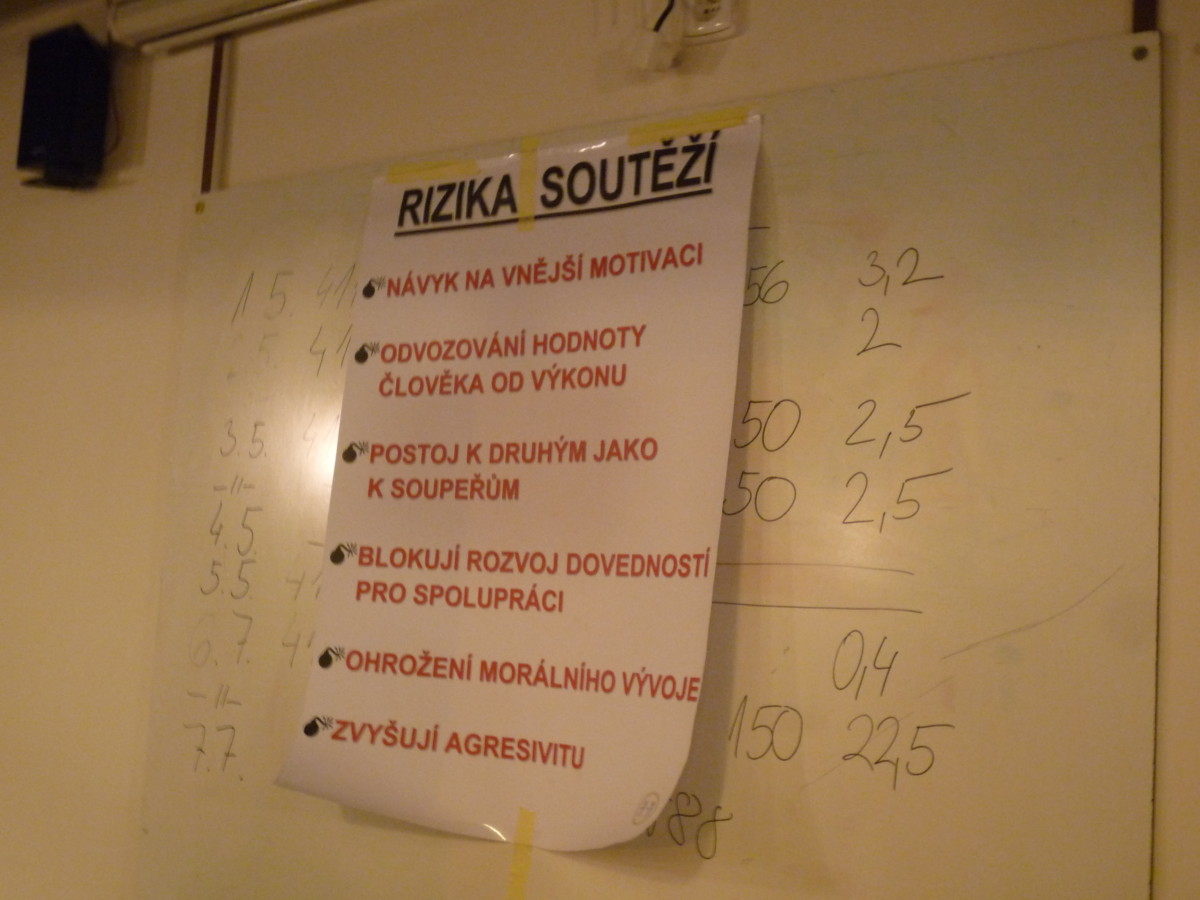 RIZIKA SOUTĚŽÍ
NÁVYK NA VNĚJŠÍ MOTIVACI
ODVOZOVÁNÍ HODNOTY
ČLOVĚKA OD VÝKONU
POSTOJ K DRUHÝM JAKO
K SOUPEŘŮM
BLOKUJÍ ROZVOJ DOVEDNOSTÍ
PRO SPOLUPRÁCI
OHROŽENÍ MORÁLNÍHO VÝVOJE
ZVYŠUJÍ AGRESIVITU
1 5. 41
41
3.5.
-11-
4.5.
5.5.
6.7.
-11-
7.7.
56 3,2
2
50 2,5
50 2,5
0,4
150 22,5